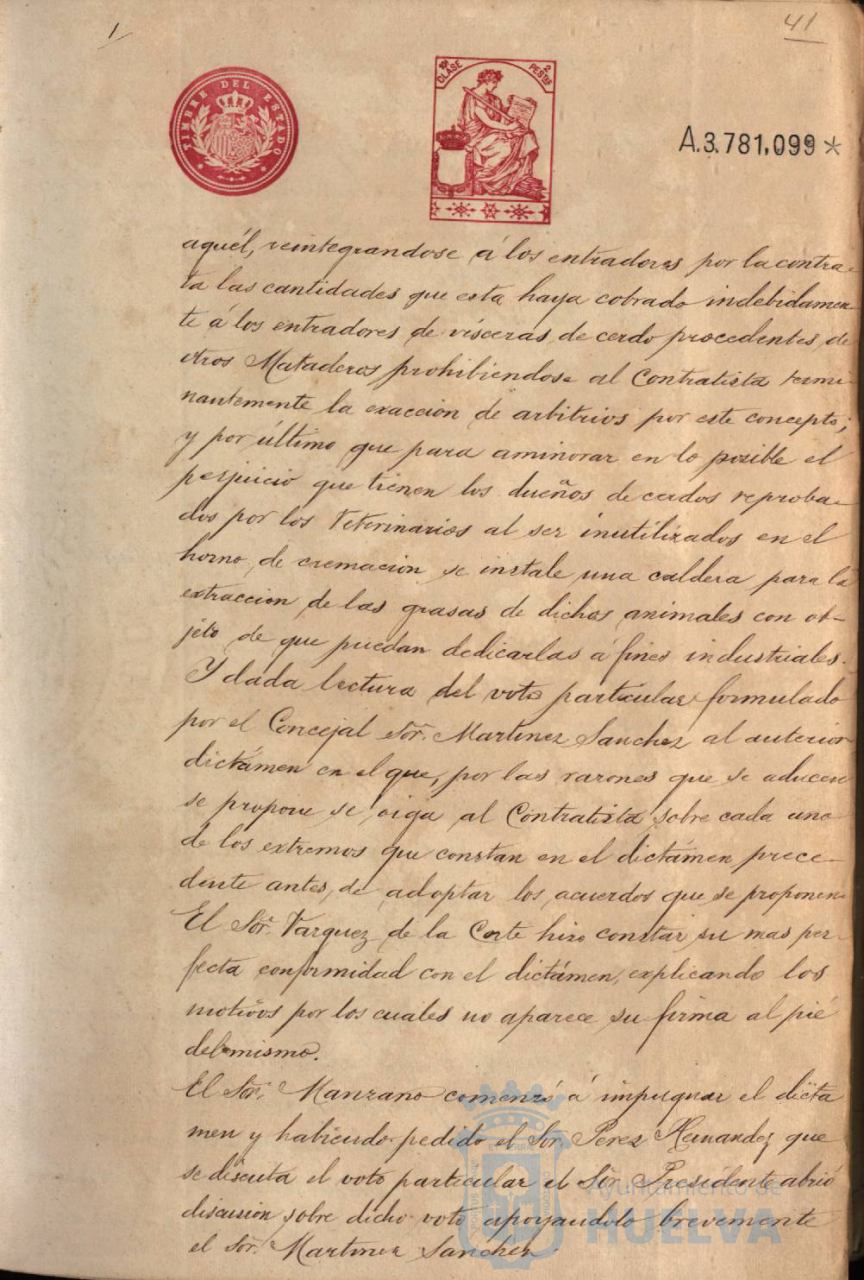 1
41
TIMBRE DEL ESTADO
10ª CLASE
2 PESTAS
A.3.781,099*
aquél, reintegrandose á los entradores por la contra-
ta las cantidades que esta haya cobrado indebidamen-
te á los entradores de vísceras de cerdo procedentes de
otros Mataderos prohibiendose al Contratista termi-
nantemente la exacción de arbitrios por este concepto;
y por último que para aminorar en lo posible el
perjuicio que tienen los dueños de cerdos reproba-
dos por los Veterinarios al ser inutilizados en el
horno de cremación se instale una caldera para la
extraccion de las grasas de dichos animales con ob-
jeto de que puedan dedicarlas á fines industriales.
Y dada lectura del voto particular formulado
por el Concejal Sor. Martinez Sanchez al anterior
dictámen en el que, por las razones que se aducen
se propone se oiga al Contratista sobre cada uno
de los extremos que constan en el dictámen prece-
dente antes de adoptar los acuerdos que se proponen
El Sor. Vazquez de la Corte hizo constar su mas per-
fecta conformidad con el dictámen, explicando los
motivos por los cuales no aparece su firma al pié
del mismo.
El Sor. Manzano comenzó á impugnar el dicta
men y habiendo pedido el Sor. Perez Hernandez que
se discuta el voto particular el Sor. Presidente abrió
discusión sobre dicho voto apoyandolo brevemente
el Sor. Martinez Sanchez
Ayuntamiento de
HUELVA